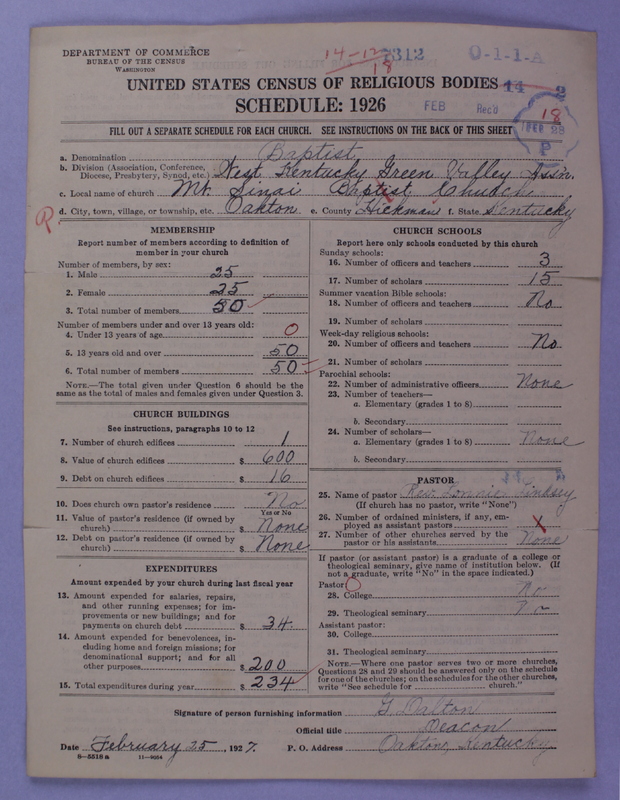 DEPARTMENT OF COMMERCE
BUREAU OF THE CENSUS
WASHINGTON
14-12
18
0-1-1-A
UNITED STATES CENSUS OF RELIGIOUS BODIES
SCHEDULE: 1926
FEB Rec'd
18
P
FILL OUT A SEPARATE SCHEDULE FOR EACH CHURCH. SEE INSTRUCTIONS ON THE BACK OF THIS SHEET
a. Denomination Baptist
b. Division (Association, Conference, Diocese, Presbytery, Synod, etc.) West Kentucky Green Valley Assn.
c. Local name of church Mt. Sinai Baptist Church
d. City, town, village, or township, etc. Oakton e. County Hickman f. State Kentucky
MEMBERSHIP
Report number of members according to definition of
member in your church
Number of members, by sex:
1. Male 25
2. Female 25
3. Total number of members 50
Number of members under and over 13 years old:
4. Under 13 years of age 0
5. 13 years old and over 50
6. Total number of members 50
NOTE.—The total given under Question 6 should be the
same as the total of males and females given under Question 3.
CHURCH BUILDINGS
See instructions, paragraphs 10 to 12
7. Number of church edifices 1
8. Value of church edifices $ 600
9. Debt on church edifices $ 16
10. Does church own pastor's residence No
Yes or No
11. Value of pastor's residence (if owned by
church) $ None
12. Debt on pastor's residence (if owned by
church) $ None
EXPENDITURES
Amount expended by your church during last fiscal year
13. Amount expended for salaries, repairs,
and other running expenses; for im-
provements or new buildings; and for
payments on church debt $ 34
14. Amount expended for benevolences, in-
cluding home and foreign missions; for
denominational support; and for all
other purposes $ 200
15. Total expenditures during year $ 234
CHURCH SCHOOLS
Report here only schools conducted by this church
Sunday schools:
16. Number of officers and teachers 3
17. Number of scholars 15
Summer vacation Bible schools:
18. Number of officers and teachers No
19. Number of scholars
Week-day religious schools:
20. Number of officers and teachers No
21. Number of scholars
Parochial schools:
22. Number of administrative officers None
23. Number of teachers—
a. Elementary (grades 1 to 8)
b. Secondary
24. Number of scholars—
a. Elementary (grades 1 to 8) None
b. Secondary
PASTOR
25. Name of pastor Rev. Lonnie Lindsey
(If church has no pastor, write "None")
26. Number of ordained ministers, if any, em-
ployed as assistant pastors X
27. Number of other churches served by the
pastor or his assistants None
If pastor (or assistant pastor) is a graduate of a college or
theological seminary, give name of institution below. (If
not a graduate, write "No" in the space indicated.)
Pastor: 0
28. College No
29. Theological seminary No
Assistant pastor:
30. College
31. Theological seminary
NOTE.—Where one pastor serves two or more churches,
Questions 28 and 29 should be answered only on the schedule
for one of the churches; on the schedules for the other churches,
write "See schedule for church."
Signature of person furnishing information G. Dalton
Official title Deacon
Date February 25, 1927. P. O. Address Oakton, Kentucky
8—5518 a 11—9034